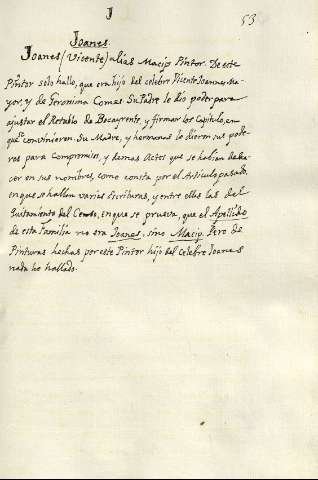 J
53
Joanes.
Joanes (Vicente) alias Macip Pintor. De este
Pintor solo hallo, que era hijo del celebre Vicente Joannes Ma-
yor, y de Geronima Comas. Su Padre le dio poder para
ajustar el Retablo de Bocayrente, y firmar los Capitulos, en
qe. convinieren. Su Madre, y hermanas le dieron sus pode-
res para Compromisos, y demas Actos que se habian de ha-
cer en sus nombres, como consta por el Articulo pasado,
en que se hallan varias Escrituras, y entre ellas las del
Quitamiento del Censo, en que se prueva, que el Apellido
de esta Familia no era Joanes, sino Macip. Pero de
Pinturas hechas por este Pintor hijo del Celebre Joanes
nada he hallado.